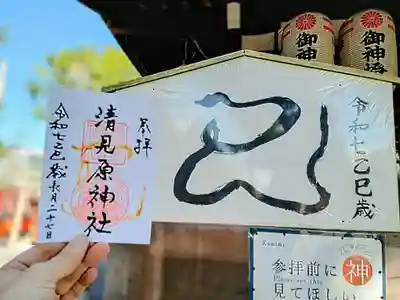 奉拝
清見原神社
令和七乙巳歳水月二十七日
令和七乙巳歳
御神
御神
神
参拝前に
神
見てほしい